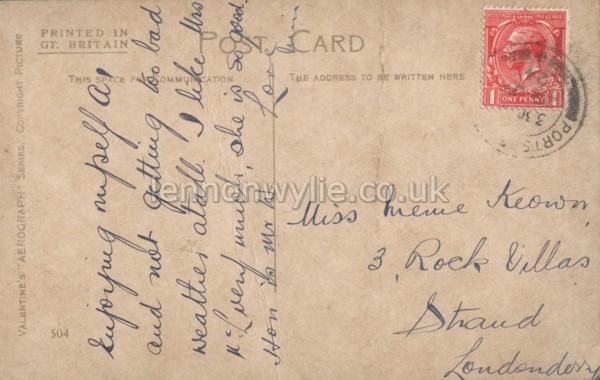 PRINTED IN
GT. BRITAIN
POST CARD
THIS SPACE FOR COMMUNICATION
THE ADDRESS TO BE WRITTEN HERE
VALENTINE'S "AEROGRAPH" SERIES. COPYRIGHT PICTURE
504
enjoying myself A1
and not getting too bad
weather atall. I like Mrs
McL very much, she is so good.
How is Mr H. Love
Miss Meme Keown
3, Rock Villas
Strand
Londonderry
ONE PENNY
PORTS
330
lennonwylie.co.uk